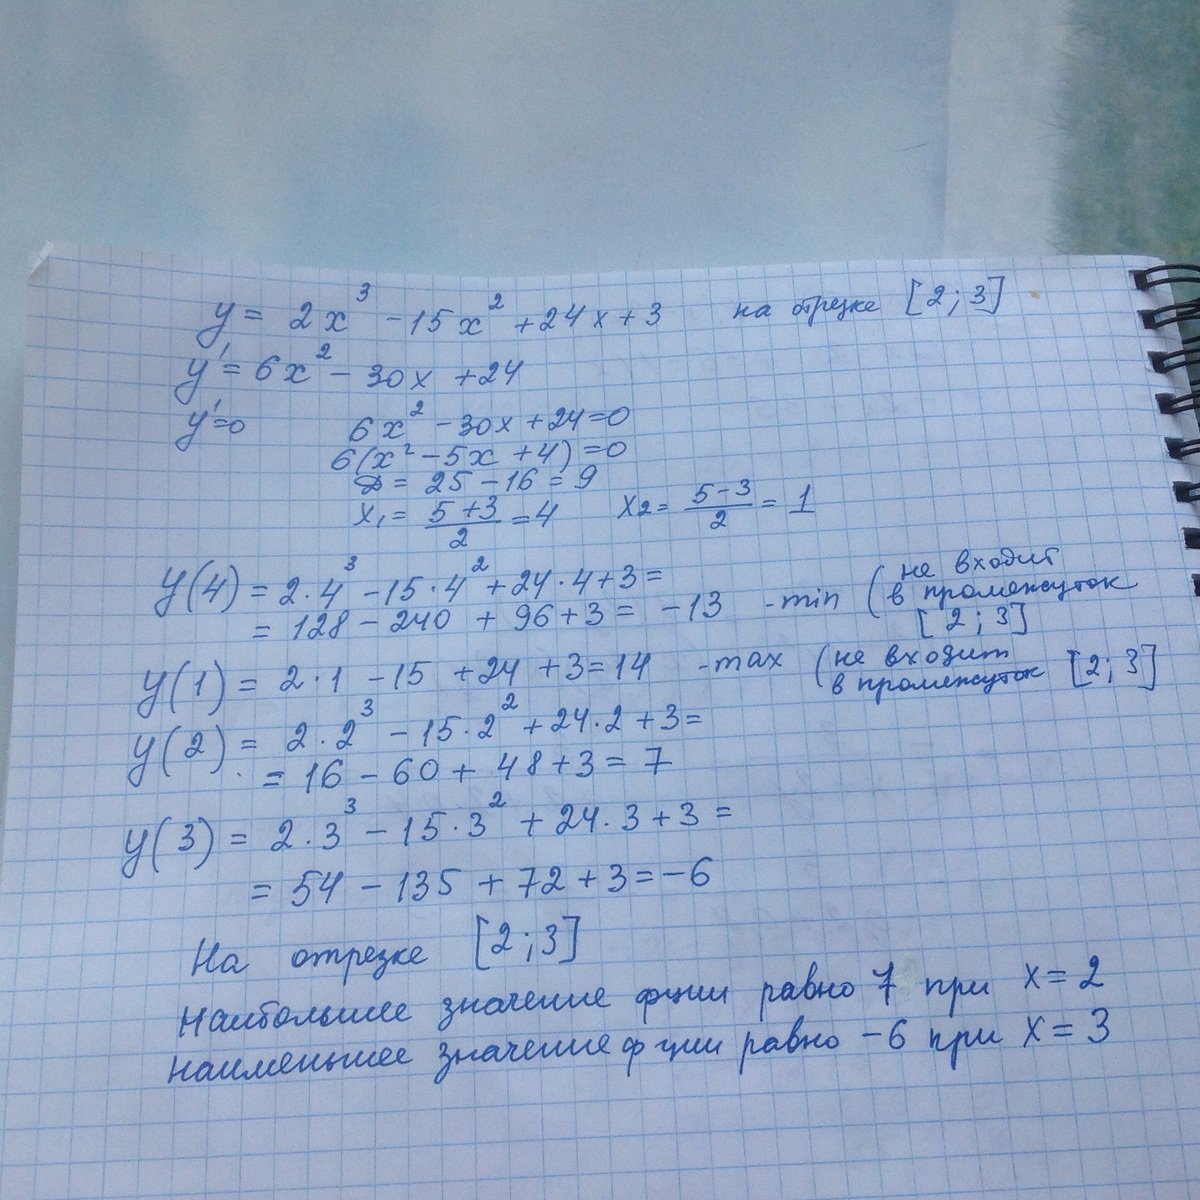 y = 2x³ - 15x² + 24x + 3 на отрезке [2; 3]
y' = 6x² - 30x + 24
y' = 0 6x² - 30x + 24 = 0
6(x² - 5x + 4) = 0
D = 25 - 16 = 9
x₁ = (5+3)/2 = 4 x₂ = (5-3)/2 = 1
y(4) = 2·4³ - 15·4² + 24·4 + 3 =
= 128 - 240 + 96 + 3 = -13 - min (не входит
в промежуток
[2; 3]
y(1) = 2·1 - 15 + 24 + 3 = 14 - max (не входит
в промежуток [2; 3]
y(2) = 2·2³ - 15·2² + 24·2 + 3 =
= 16 - 60 + 48 + 3 = 7
y(3) = 2·3³ - 15·3² + 24·3 + 3 =
= 54 - 135 + 72 + 3 = -6
На отрезке [2; 3]
Наибольшее значение фции равно 7 при x = 2
наименьшее значение фции равно -6 при x = 3